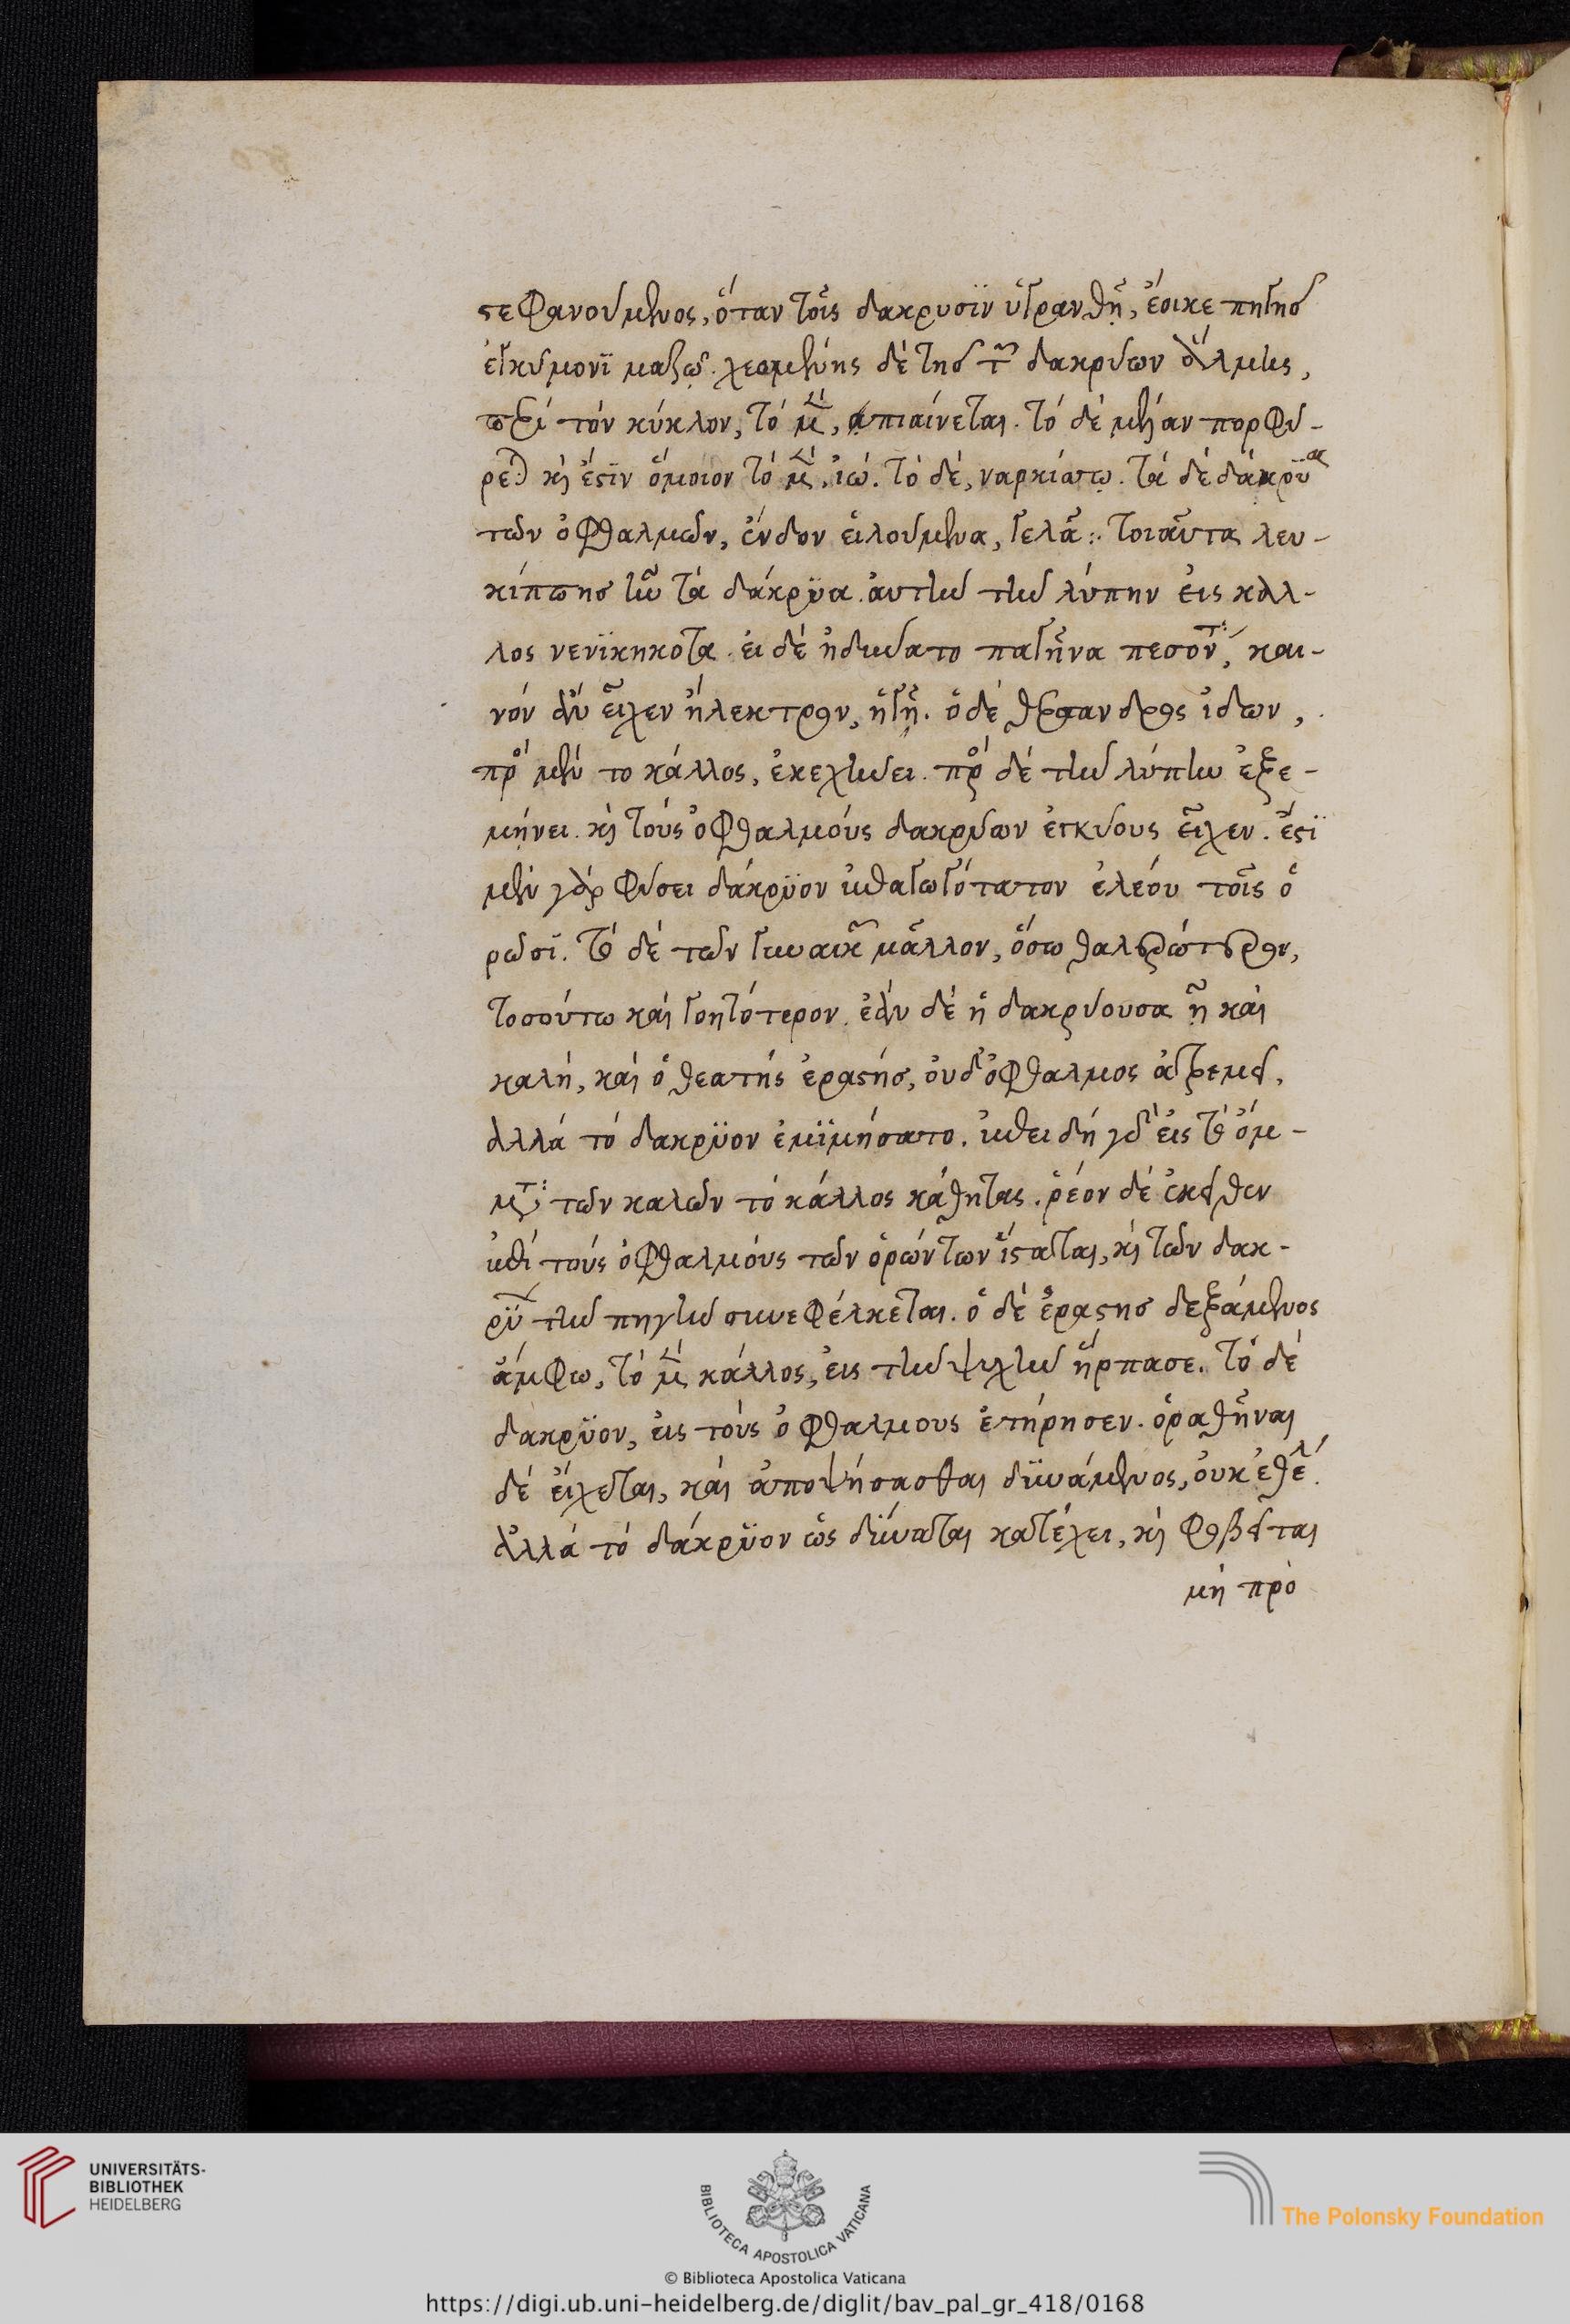 στεφανούμενος, ὅταν τοῖς δακρυσϊν ὑγρανθῆ, ἔοικε πηγῆσ
ἐγκύμονϊ μαζῷ. χεομένης δὲ τῆσ τῶν δακρύων ἅλμης,
περὶ τὸν κύκλον, τὸ μὲν, πιαίνεται. τὸ δὲ μέλαν πορφύ-
ρεται καὶ ἔστϊν ὅμοιον τὸ μὲν, ἰώ. τὸ δὲ, ναρκίσσῳ. τὰ δὲ δάκρϋα
τῶν ὀφθαλμῶν, ἔνδον εἱλούμενα, γελᾶ: τοιαῦτα λευ-
κίππησ ἦν τὰ δάκρϋα. ἀυτὴν τὴν λύπην ἐις κάλ-
λος νενϊκηκότα. ἐι δὲ ἠδύνατο παγῆναι πεσόντα, και-
νὸν ἂν εἶχεν ἤλεκτρον, ἡ γῆ. ὁ δὲ θέρσανδρος ἰδων,
πρὸς μὲν το κάλλος, ἐκεχήνει. πρὸς δὲ τὴν λύπην ἐξε-
μήνει. καὶ τοὺς ὀφθαλμοὺς δακρύων ἐγκύους εἶχεν. ἔστϊ
μὲν γὰρ φύσει δάκρϋον ἐπαγωγότατον ἐλέου τοῖς ὁ
ρῶσϊ. τὸ δὲ τῶν γυναικῶν μᾶλλον, ὅσω θαλερώτερον,
τοσούτω καὶ γοητότερον. ἐὰν δὲ ἡ δακρύουσα ἦ καὶ
καλὴ, καὶ ὁ θεατὴς ἐραστὴσ, ὀυδ' ὀφθαλμος ἀτρεμεῖ,
ἀλλὰ τὸ δακρϋον ἐμϊμήσατο. ἐπειδὴ γὰρ εἰς τὰ ὄμ-
ματα τῶν καλῶν τὸ κάλλος κάθηται. ῥέον δὲ ἐκεῖθεν
ἐπὶ τοὺς ὀφθαλμοὺς τῶν ὁρώντων ἵσταται, καὶ τῶν δακ-
ρϋων τὴν πηγὴν συνεφέλκεται. ὁ δὲ ἐραστησ δεξάμενος
ἄμφω, τὸ μὲν κάλλος, ἐις τὴν ψυχὴν ἥρπασε. τὸ δὲ
δακρϋον, ἐις τοὺς ὀφθαλμους ἐτήρησεν. ὁραθῆναι
δὲ ἔυχεται, καὶ ἀποψήσασθαι δϋνάμενος, ὀυκ ἐθέλει.
ἀλλὰ τὸ δάκρϋον ὡς δύναται κατέχει, καὶ φοβεῖται
μὴ πρὸ
UNIVERSITÄTS-
BIBLIOTHEK
HEIDELBERG
BIBLIOTECA APOSTOLICA VATICANA
The Polonsky Foundation
© Biblioteca Apostolica Vaticana
https://digi.ub.uni-heidelberg.de/diglit/bav_pal_gr_418/0168